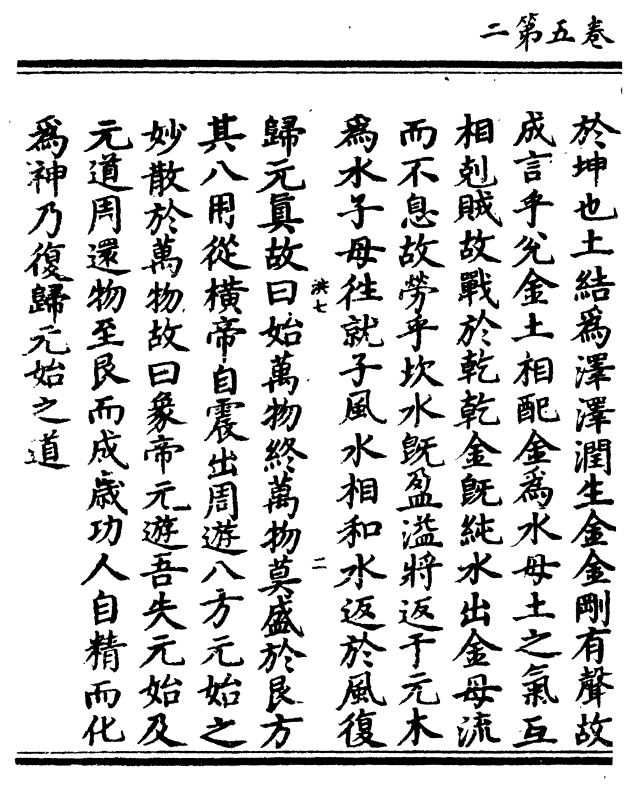 二第五卷
於坤也土結爲澤澤潤生金金剛有聲故
成言乎兊金土相配金爲水母土之氣互
相剋賊故戰於乾乾金旣純水出金母流
而不息故勞乎坎水旣盈溢將返于元木
爲水子母徃就子風水相和水返於風復
洪七
二
歸元眞故曰始萬物終萬物莫盛於艮方
其八用從橫帝自震出周遊八方元始之
妙散於萬物故曰象帝元遊吾失元始及
元道周還物至艮而成歲功人自精而化
爲神乃復歸元始之道